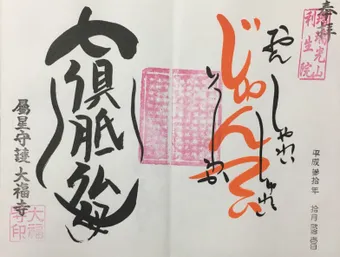 奉拝
利生院
おん
しゃれい
しゅれい
じゅんてい
そわか
平成参拾年 拾月
七倶胝仏母
属星守護 大福寺
大福寺印